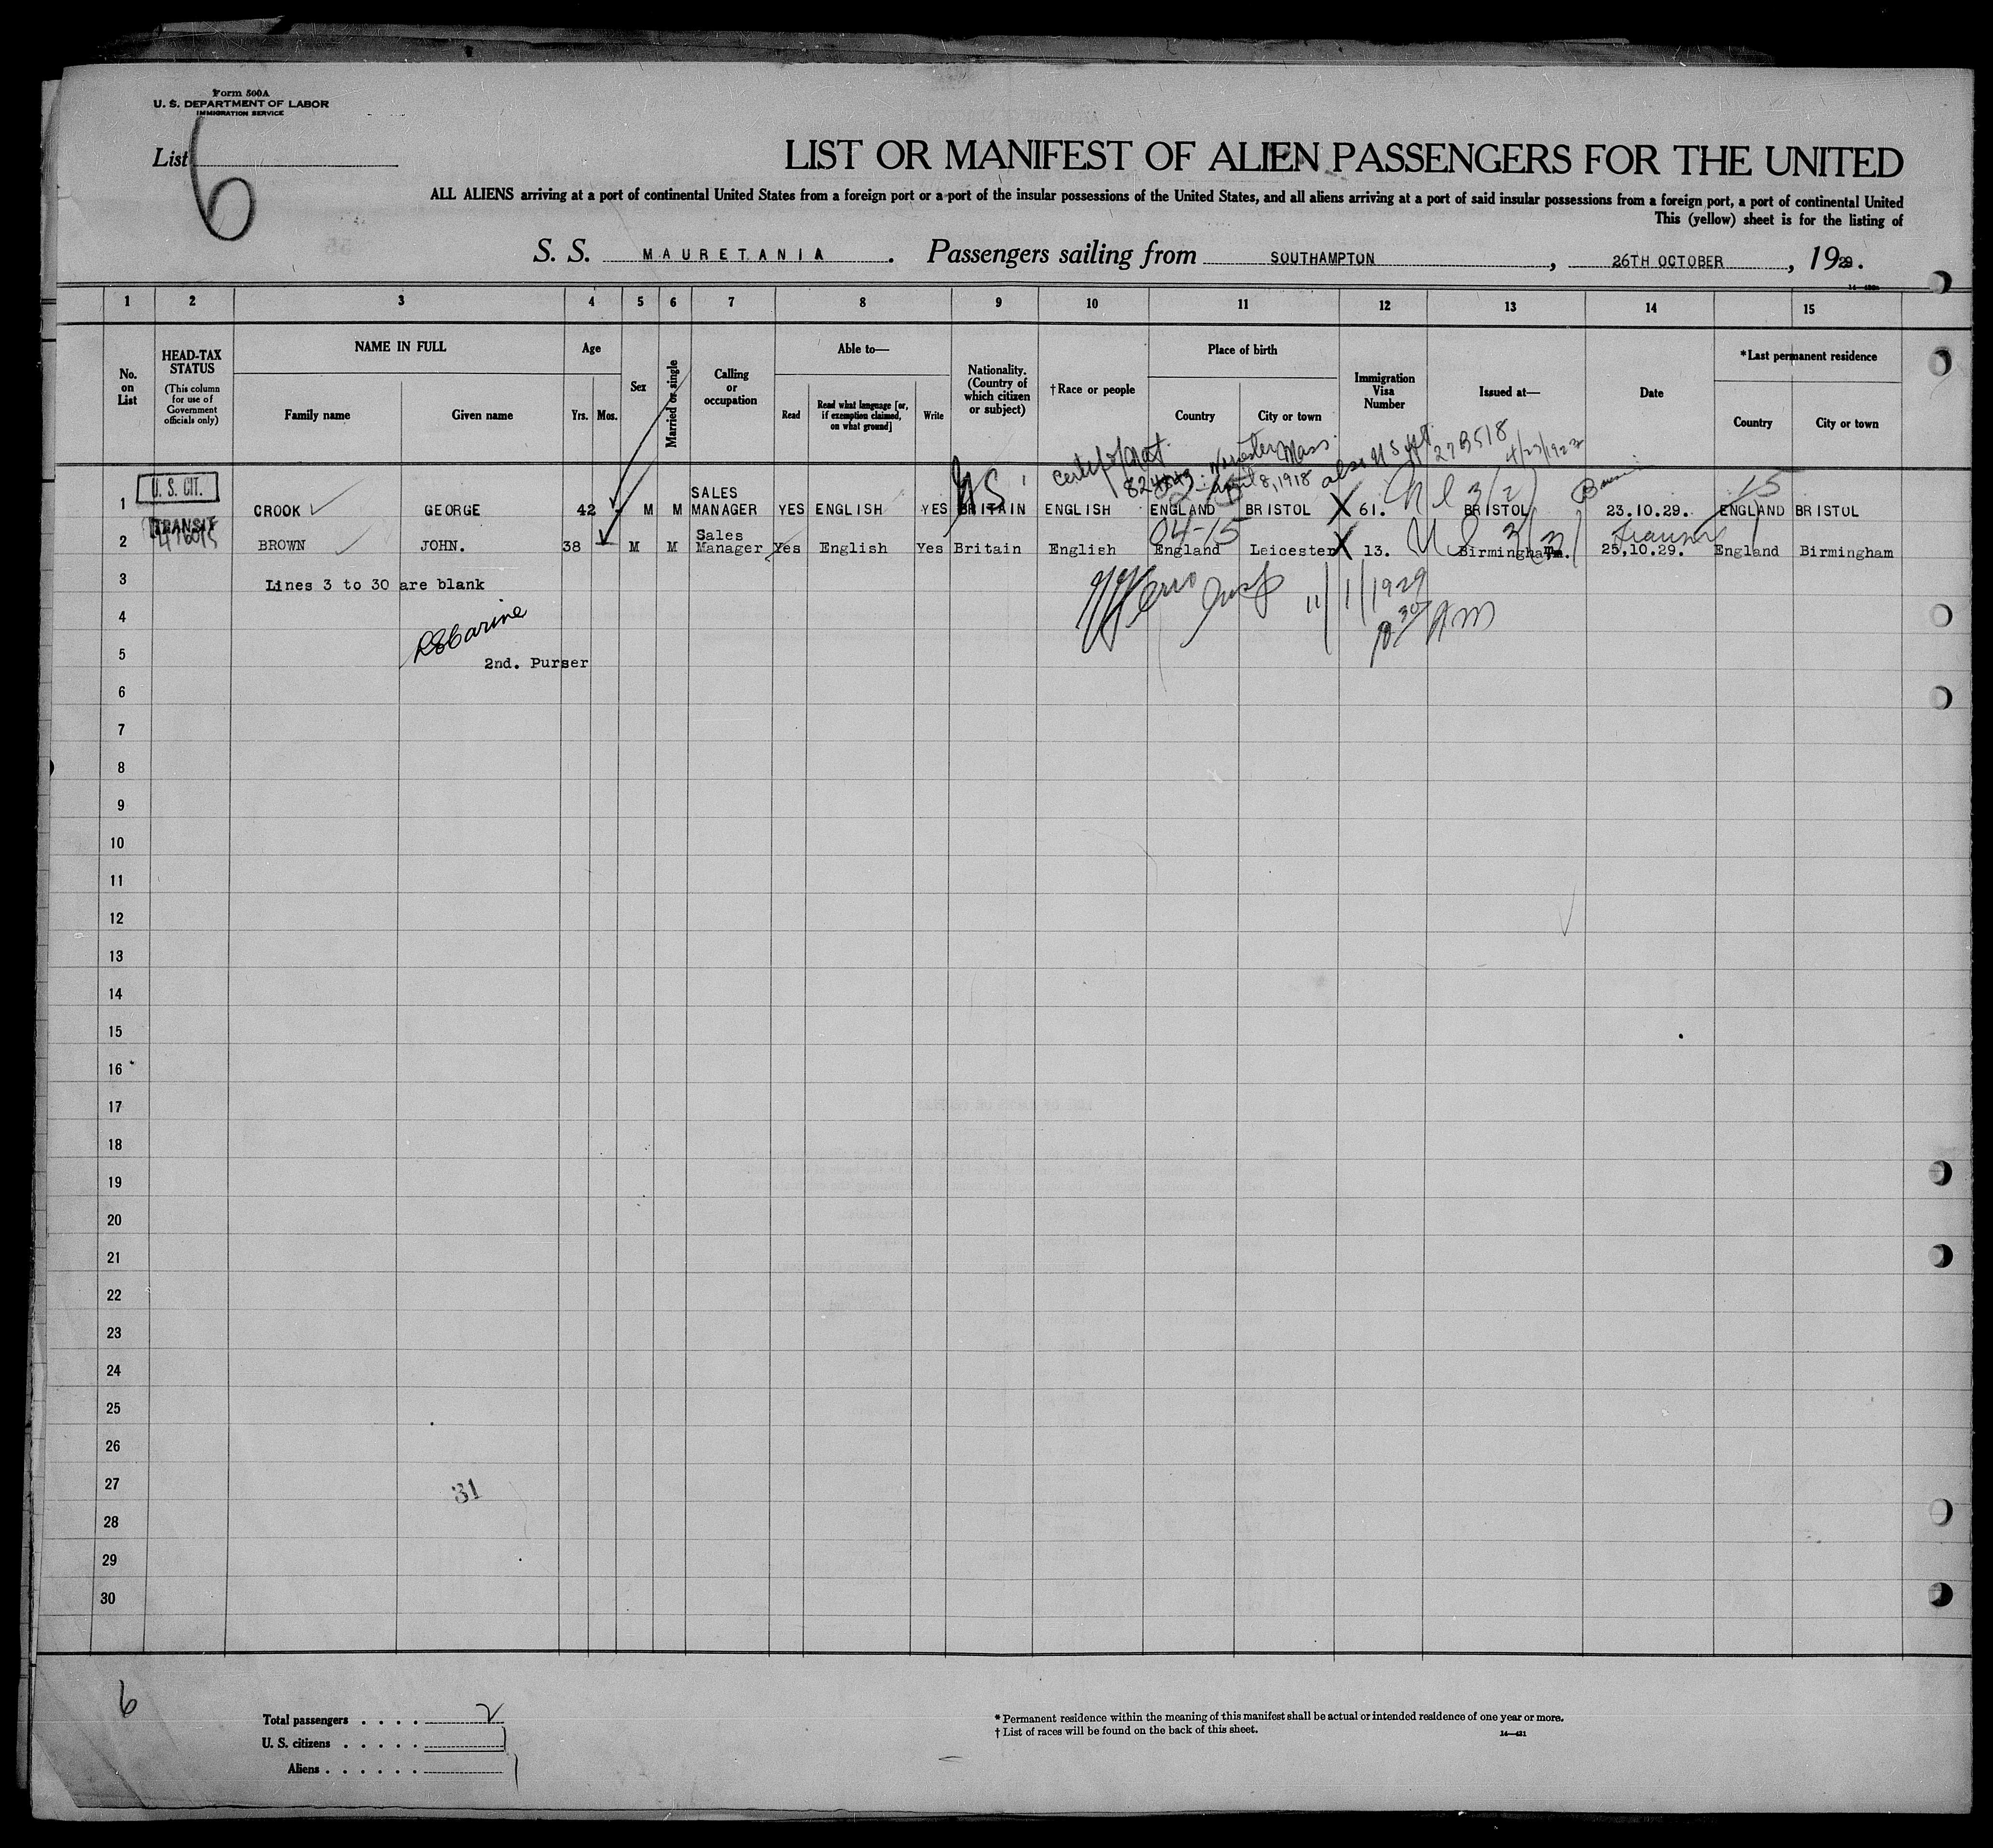 Form 500A
U. S. DEPARTMENT OF LABOR
IMMIGRATION SERVICE
List 6
LIST OR MANIFEST OF ALIEN PASSENGERS FOR THE UNITED
ALL ALIENS arriving at a port of continental United States from a foreign port or a port of the insular possessions of the United States, and all aliens arriving at a port of said insular possessions from a foreign port, a port of continental United
This (yellow) sheet is for the listing of
S. S. MAURETANIA. Passengers sailing from SOUTHAMPTON, 26TH OCTOBER, 1929.
1 2 3 4 5 6 7 8 9 10 11 12 13 14 15
No. on List
HEAD-TAX STATUS
(This column for use of Government officials only)
NAME IN FULL
Family name
Given name
Age
Yrs.
Mos.
Sex
Married or single
Calling or occupation
Able to—
Read
Read what language [or, if exemption claimed, on what ground]
Write
Nationality. (Country of which citizen or subject)
†Race or people
Place of birth
Country
City or town
Immigration Visa Number
Issued at—
Date
*Last permanent residence
Country
City or town
Worcester Mass. also U S
27B518
April 8, 1918
1 U. S. CIT. CROOK GEORGE 42 M M SALES MANAGER YES ENGLISH YES BRITAIN US ENGLISH ENGLAND BRISTOL X 61. BRISTOL 23.10.29. ENGLAND BRISTOL
15
04-15
2 TRANSIT BROWN JOHN. 38 M M Sales Manager Yes English Yes Britain English England Leicester X 13. Birmingham. 25.10.29. England Birmingham
3 Lines 3 to 30 are blank
11/1/1929
10 30 AM
4
5 2nd. Purser
6
7
8
9
10
11
12
13
14
15
16
17
18
19
20
21
22
23
24
25
26
27
31
28
29
30
6
Total passengers . . . . 2
U. S. citizens . . . . . 1
Aliens . . . . . . 1
* Permanent residence within the meaning of this manifest shall be actual or intended residence of one year or more.
† List of races will be found on the back of this sheet.
14—421